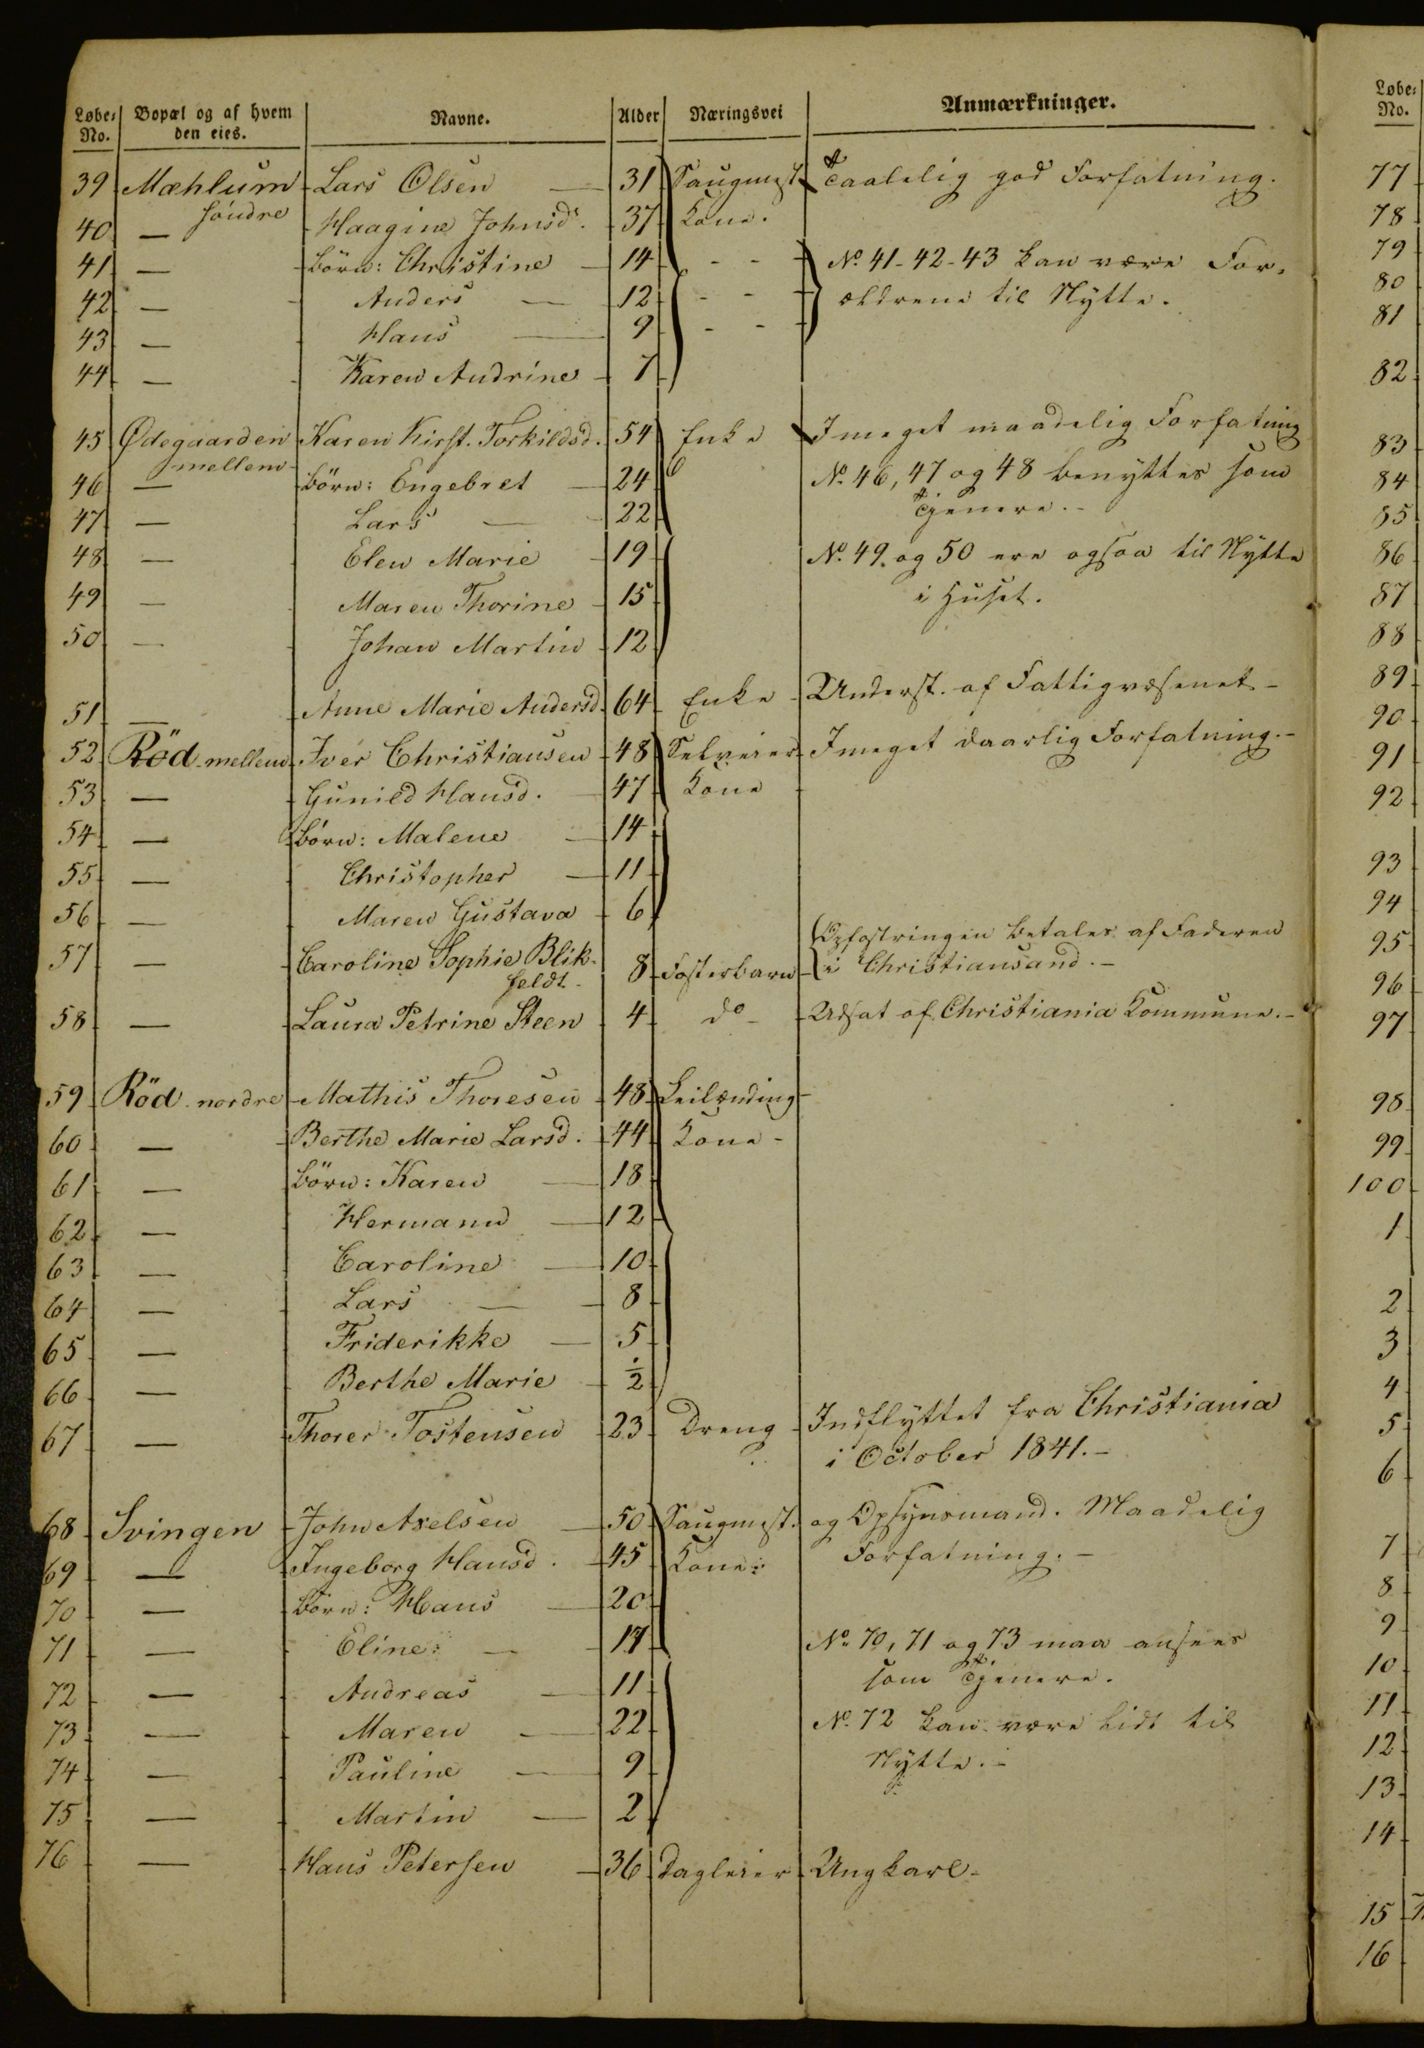 Løbe- No. Bopæl og af hvem den eies. Navne. Alder Næringsvei Anmærkninger.
39 Mæhlum Lars Olsen — 31 Saugmest. Taalelig god Forfatning.
40 — söndre Haagine Johnsd. 37 Kone.
41 — Börn: Christine — 14 - - No. 41-42-43 kan være For-
42 — Anders — 12 - - ældrene til Nytte.
43 — Hans — 9 - -
44 — Karen Andrine - 7
45 Ødegaarden Karen Kirst. Torkildsd. 54 Enke I meget maadelig Forfatning
46 — mellem Börn: Engebret — 24 No. 46, 47 og 48 benyttes som
47 — Lars — 22 Tjenere.-
48 — Elen Marie - 19 No. 49. og 50 ere ogsaa til Nytte
49 — Maren Thorine - 15 i Huset.
50 — Johan Martin - 12
51 — Anne Marie Andersd. 64 Enke - Underst. af Fattigvæsenet-
52 Röd mellem Iver Christiansen - 48 Selveier I meget daarlig Forfatning.-
53 — Gunild Hansd. - 47 Kone
54 — Börn: Malene — 14
55 — Christopher — 11
56 — Maren Gustava - 6
57 — Caroline Sophie Blik- 8 Fosterbarn Opfostringen betales af Faderen
feldt. i Christiansand.-
58 — Laura Petrine Steen 4 do - Udsat af Christiania Kommune.-
59 Röd nordre Mathis Thoresen - 48 Leilænding-
60 — Berthe Marie Larsd. 44 Kone-
61 — Börn: Karen — 18
62 — Hermann — 12
63 — Caroline — 10
64 — Lars — 8
65 — Friderikke — 5
66 — Berthe Marie - ½
67 — Thorer Tostensen - 23 Dreng Indflyttet fra Christiania
i October 1841.-
68 Svingen John Axelsen — 50 Saugmest. og Opsynsmand. Maadelig
69 — Ingeborg Hansd. - 45 Kone: Forfatning.-
70 — Börn: Hans — 20
71 — Eline: — 17 No. 70, 71 og 73 maa ansees
72 — Andreas — 11 som Tjenere.
73 — Maren — 22 No. 72 kan være lidt til
74 — Pauline — 9 Nytte.-
75 — Martin — 2
76 — Hans Petersen — 36 Dagleier Ungkarl-
Løbe- No.
77
78
79
80
81
82
83
84
85
86
87
88
89
90
91
92
93
94
95
96
97
98
99
100
1
2
3
4
5
6
7
8
9
10
11
12
13
14
15
16